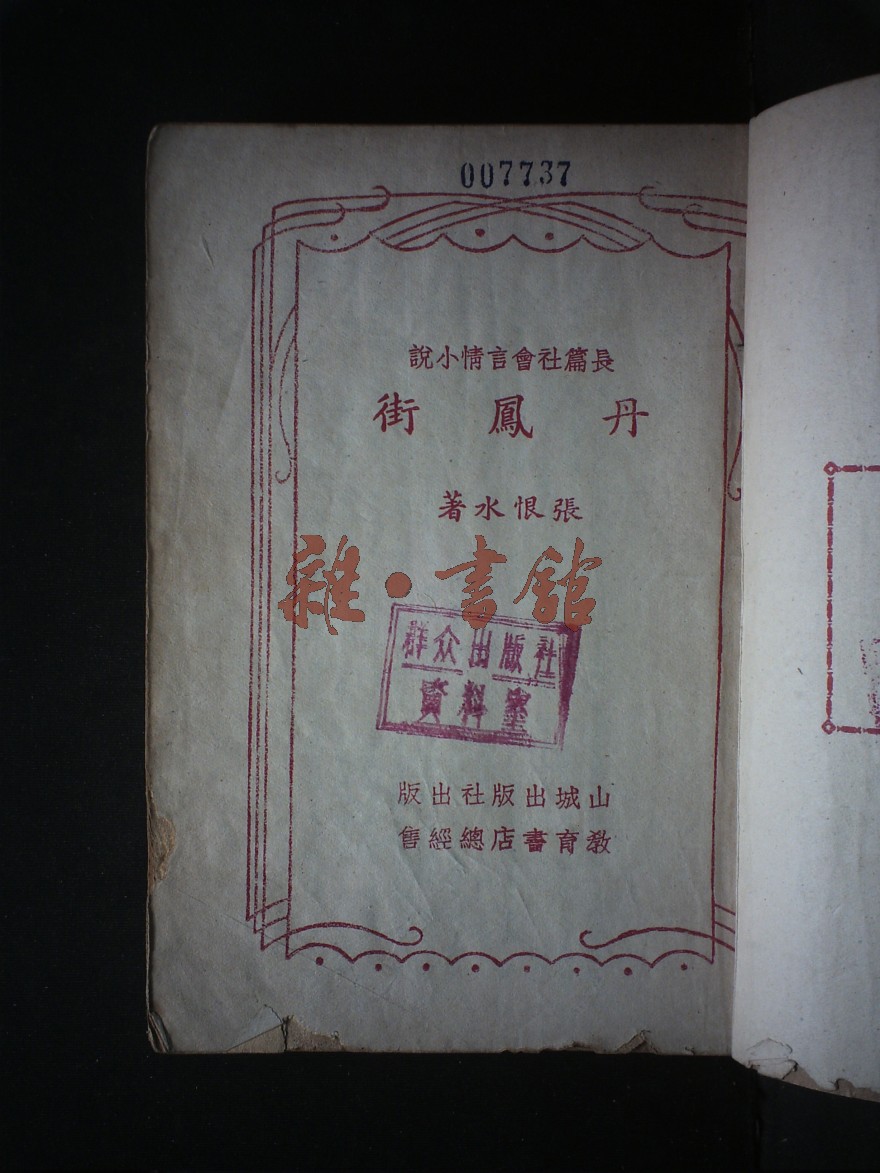 007737
長篇社會言情小說
丹鳳街
張恨水著
雜·書館
群众出版社
資料室
山城出版社出版
教育書店總經售